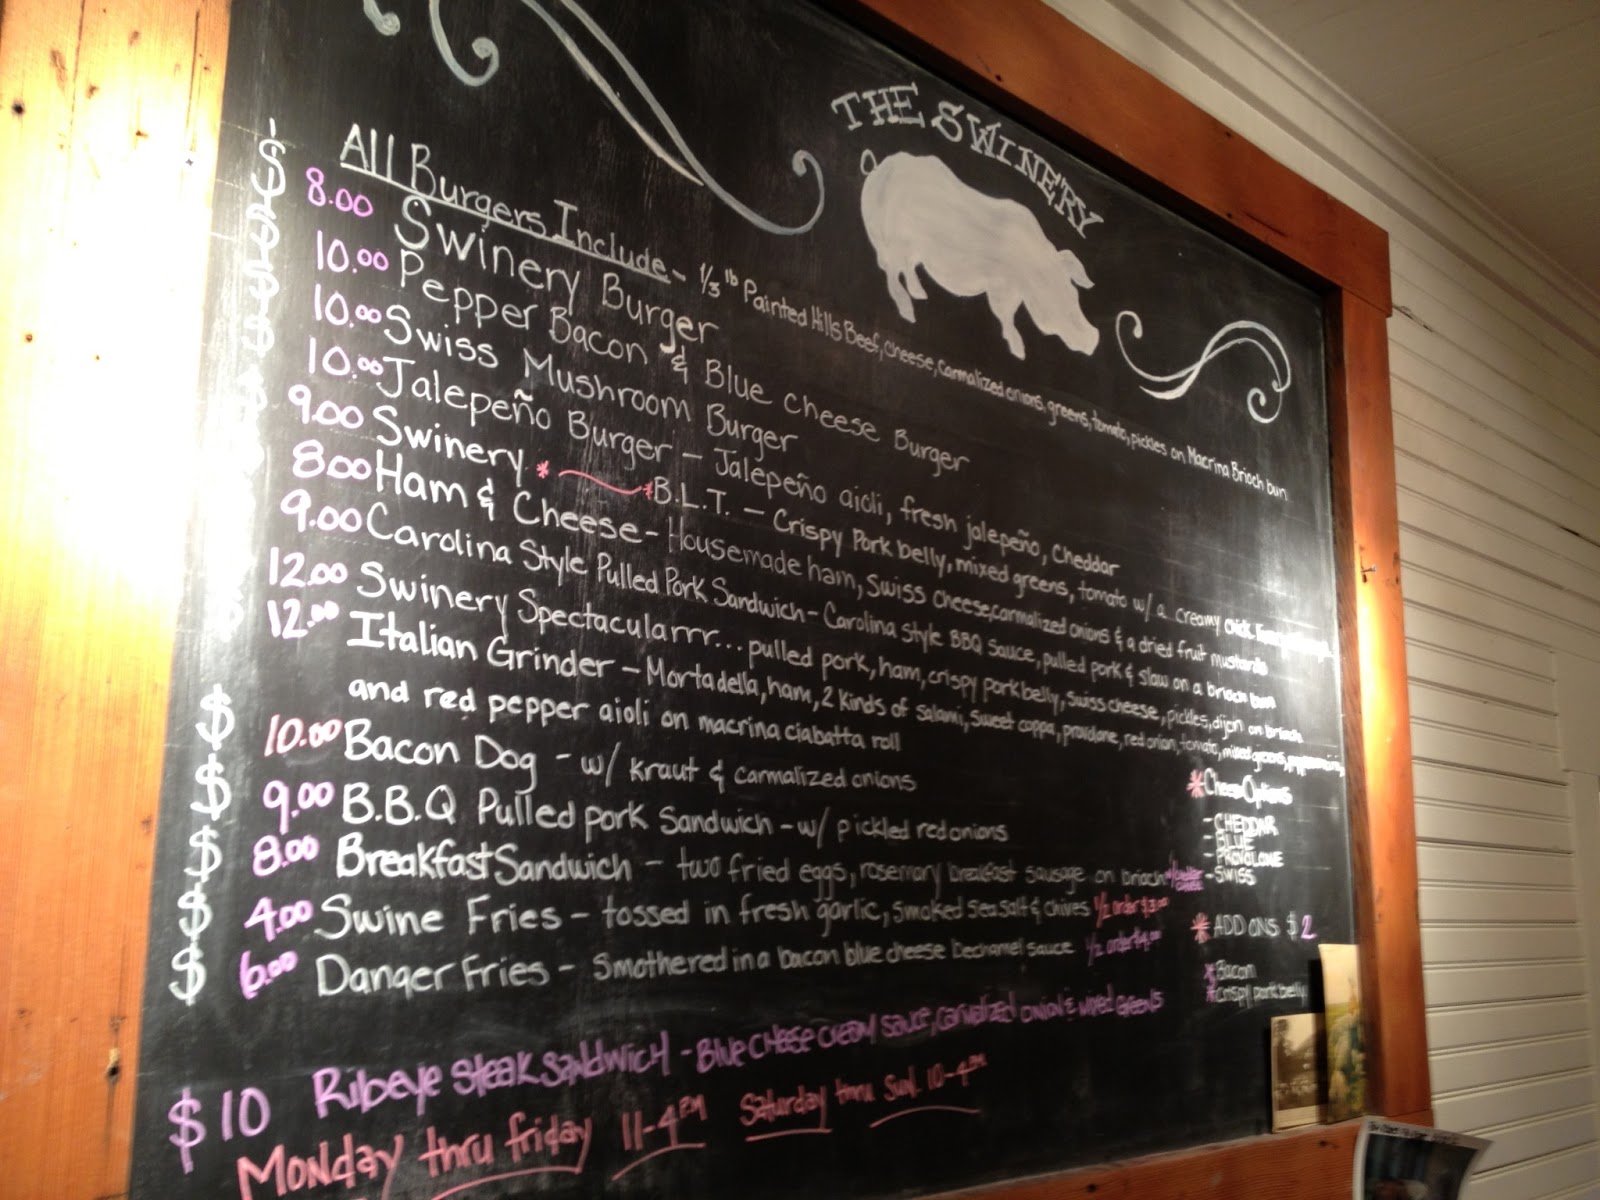 THE SWINERY
All Burgers Include ~ 1/3 lb Painted Hills Beef, cheese, carmalized onions, greens, tomato, pickles on Macrina Brioch bun
$ 8.00 Swinery Burger
$ 10.00 Pepper Bacon & Blue Cheese Burger
$ 10.00 Swiss Mushroom Burger
$ 10.00 Jalepeño Burger - Jalepeño aioli, fresh jalepeño, Cheddar
9.00 Swinery * * B.L.T. - Crispy Pork belly, mixed greens, tomato w/ a creamy
8.00 Ham & Cheese - Housemade ham, Swiss cheese, carmalized onions & a dried fruit mustarda
9.00 Carolina Style Pulled Pork Sandwich - Carolina Style BBQ Sauce, pulled pork & slaw on a brioch bun
12.00 Swinery Spectacularrr... pulled pork, ham, crispy pork belly, Swiss cheese, pickles, dijon on brioch
12.00 Italian Grinder - Mortadella, ham, 2 Kinds of Salami, sweet coppa, provolone, red onion, tomato, mixed greens,
and red pepper aioli on macrina ciabatta roll
$ 10.00 Bacon Dog - w/ kraut & carmalized onions
$ 9.00 B.B.Q Pulled pork Sandwich - w/ pickled red onions
$ 8.00 Breakfast Sandwich - two fried eggs, rosemary breakfast sausage on brioch
$ 4.00 Swine Fries - tossed in fresh garlic, smoked sea salt & chives 1/2 order $3.00
$ 6.00 Danger Fries - Smothered in a bacon blue cheese bechamel sauce 1/2 order $4.00
* Cheese Options
- CHEDDAR
- BLUE
- PROVOLONE
- SWISS
* ADD ONS $ 2
* Bacon
* crispy pork belly
$ 10 Ribeye Steak Sandwich - Blue Cheese cream sauce, carmalized onion & mixed greens
Monday thru friday 11-4PM Saturday thru Sun. 10-4PM